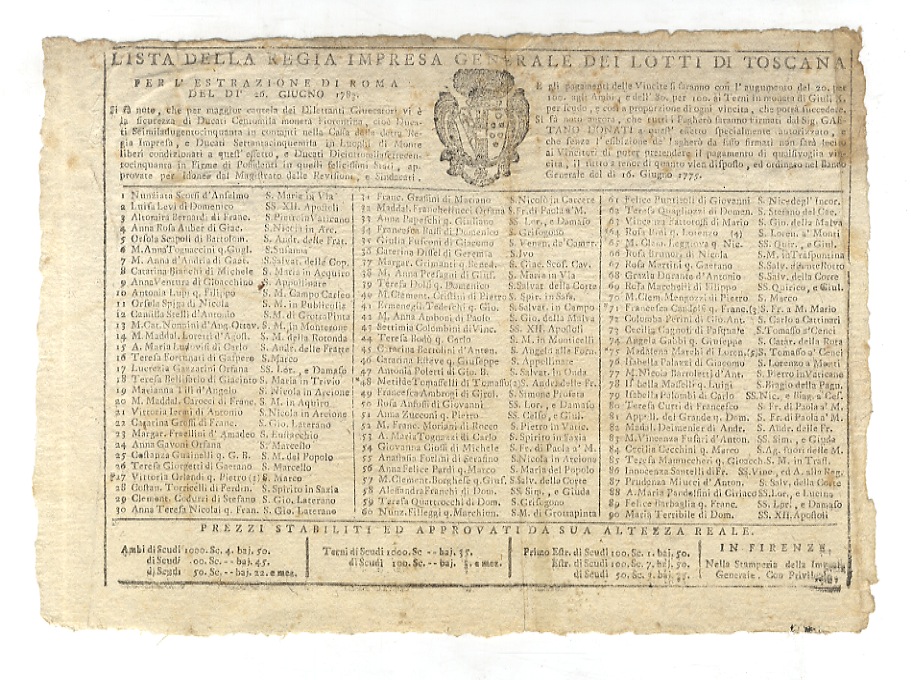 LISTA DELLA REGIA IMPRESA GENERALE DEI LOTTI DI TOSCANA
PER L'ESTRAZIONE DI ROMA
DEL DI' 26. GIUGNO
Si fà noto, che per maggior cautela dei Dilettanti Giuocatori vi è
la sicurezza di Ducati Centomila moneta Fiorentina, cioè Duca-
ti Seimiladugentocinquanta in contanti nella Cassa della detta Re-
gia Impresa, e Ducati Settantacinquemila in Luoghi di Monte
liberi condizionati a quest' effetto, e Ducati Diciottomilasettecen-
tocinquanta in Firme di Possidenti in questi felicissimi Stati, ap-
provate per Idonee dal Magistrato delle Revisioni, e Sindacati.
E gli pagamenti delle Vincite si faranno con l'augumento del 20. per
100. agli Ambi, e dell' 80. per 100. ai Terni in moneta di Giul. X.
per scudo, e così a proporzione di ogni vincita, che potrà succedere.
Si fà noto ancora, che tutti i Pagherò saranno firmati dal Sig. GAE-
TANO DONATI a quest' effetto specialmente autorizzato, e
che senza l' esibizione de' pagherò da esso firmati non sarà lecito
ai Vincitori di poter pretendere il pagamento di qualsivoglia vin-
cita, il tutto a tenore di quanto vien disposto, ed ordinato nel Bando
Generale del dì 16. Giugno 1775.
1 Nunziata Scossi d'Anselmo S. Maria in Via
2 Luisa Levi di Domenico SS. XII. Apostoli
3 Altonaira Bernardi di Franc. S. Pietro in Vaticano
4 Anna Rosa Auber di Giac. S. Niccola in Arc.
5 Orsola Scapoli di Bartolom. S. Andr. delle Frat.
6 M. Anna Tognaccini q. Gugl. S. Susanna
7 M. Anna d'Andria di Gaet. S. Salvat. delle Cop.
8 Catarina Bianchi di Michele S. Maria in Acquiro
9 Anna Ventura di Gioacchino S. Appollinare
10 Antonia Lupi q. Filippo S. M. Campo Carleo
11 Orsola Spiga di Nicola S. M. in Publicolis
12 Camilla Stelli d'Antonio S. M. di Grotta Pinta
13 M. Cat. Nonnini d'Ang. Ottav. S. M. in Monterone
14 M. Maddal. Lorenzi d'Agost. S. M. della Rotonda
15 A. Maria Ludovisi di Carlo S. Andr. delle Fratte
16 Teresa Fortunati di Gaspero S. Marco
17 Lucrezia Gazzarini Orfana SS. Lor., e Damaso
18 Teresa Bellisario di Giacinto S. Maria in Trivio
19 Marianna Tili d'Angelo S. Nicola in Arcione
20 M. Maddal. Carocci di Franc. S. M. in Aquiro
21 Vittoria Iermi di Antonio S. Nicola in Arcione
22 Catarina Grossi di Franc. S. Gio. Laterano
23 Margar. Froellini d' Amadeo S. Eustacchio
24 Anna Gavoni Orfana S. Marcello
25 Costanza Guainelli q. G. B. S. M. del Popolo
26 Teresa Giorgetti di Gaetano S. Marcello
*27 Vittoria Orlandi q. Pietro S. Marco
28 Costan. Torricelli di Ferdin. S. Spirito in Saxia
29 Clement. Codutti di Stefano S. Gio. Laterano
30 Anna Teresa Nicolai q. Fran. S. Gio. Laterano
31 Franc. Grassini di Mariano S. Nicolò in Carcere
32 Maddal. Franchellucci Orfana S. Fr. di Paola a' M.
33 Anna Papeschi q. Giuliano SS. Lor., e Damaso
34 Francesca Bassi di Domenico S. Grisogono
35 Giulia Fusconi di Giacomo S. Venan. de' Camer.
36 Caterina Disset di Geremia S. Ivo
37 Margar. Grimanti di Bened. S. Giac. Scof. Cav.
38 M. Anna Presagni di Gius. S. Maria in Via
39 Teresa Dolfi q. Domenico S. Salvat. della Corte
40 M. Clement. Crissini di Pietro S. Spir. in Sass.
41 Ermenegil. Tedeschi q. Gio. S. Salvat. in Campo
42 M. Anna Amboni di Paolo S. Gio. della Malva
43 Settimia Colombini di Vinc. SS. XII. Apostoli
44 Teresa Bonù q. Carlo S. M. in Monticelli
45 Caterina Bertolini d'Anton. S. Angelo alla Forn.
46 Catarina Esteve q. Giuseppe S. Appollinare
47 Antonia Poletti di Gio. B. S. Salvat. in Onda
*48 Metilde Tomasselli di Tomasso S. Andr. delle Fr.
49 Francesca Ambrogi di Girol. S. Simone Profeta
50 Rosa Anfossi di Giovanni SS. Lor., e Damaso
51 Anna Zucconi q. Pietro SS. Celso, e Giul.
52 M. Franc. Moriani di Rocco S. Pietro in Vatic.
53 A. Maria Tognazzi di Carlo S. Spirito in Saxia
54 Giovanna Giossi di Michele S. Fr. di Paola a' M.
55 Anastasia Forlini di Serafino S. Nicola in Arcione
56 Anna Felice Pardi q. Marco S. Maria del Popolo
57 M. Clement. Borghese q. Gius. S. Salv. della Corte
58 Alessandra Franchi di Dom. SS. Sim., e Giuda
59 Teresa Quattrocchi di Dom. S. Grisogono
60 Nunz. Filleggi q. Marchion. S. M. di Grottapinta
61 Felice Puntizoli di Giovanni S. Nic. degl' Incor.
62 Teresa Quagliozzi di Domen. S. Stefano del Cac.
63 Vincenza Fattorossi di Mario S. Gio. della Malva
*64 Rosa Boni q. Lorenzo (4) S. Loren. a' Monti
65 M. Clem. Leggiova q. Nic. SS. Quir., e Giul.
66 Rosa Brunor. di Nicola S. M. in Traspontina
67 Rosa Martini q. Gaetano S. Salv. Ponte Rotto
68 Grazia Durante d'Antonio S. Salv. della Corte
69 Rosa Marchelli q. Filippo SS. Quirico, e Giul.
70 M. Clem. Mengozzi di Pietro S. Marco
*71 Francesca Canassis q. Franc. S. Fr. a M. Mario
72 Colomba Perini di Gio. Ant. S. Carlo a Cattinari
73 Cecilia Cagnoti di Pasquale S. Tomasso a' Cenci
74 Angela Gabbi q. Giuseppe S. Catar. della Rota
*75 Maddalena Marchi di Loren. S. Tomasso a' Cenci
76 Isabella Palazzi di Giacomo S. Lorenzo a Monti
77 M. Nicola Barroletti d'Ant. S. Pietro in Vaticano
78 Isabella Masselli q. Luigi S. Biagio della Pagn.
79 Isabella Palombi di Carlo SS. Nic., e Biag. a Ces.
80 Teresa Curti di Francesco S. Fr. di Paola a' M.
81 Appol. del Grande q. Dom. S. Fr. di Paola a' M.
82 Madal. Delmenier di Andr. S. Andr. delle Fr.
83 M. Vincenza Fusari d'Anton. SS. Sim., e Giuda
84 Cecilia Cecchini q. Marco S. Ag. fuori delle M.
85 Teresa Manuccheri q. Gioacch. S. M. in Trast.
86 Innocenza Santelli di Fr. SS. Vinc., ed A. allo Reg.
87 Prudenza Miucci d'Anton. S. Salv. della Corte
88 A. Maria Pardelfini di Ciriaco SS. Lor., e Lucina
89 Felice Barbaglia q. Franc. SS. Lor., e Damaso
90 Maria Terribile di Dom. SS. XII. Apostoli
PREZZI STABILITI ED APPROVATI DA SUA ALTEZZA REALE.
Ambi di Scudi 1000. Sc. 4. baj. 50.
di Scudi 100. Sc. -- baj. 45.
di Scudi 50. Sc. -- baj. 22. e mez.
Terni di Scudi 1000. Sc -- baj. 35.
di Scudi 100. Sc. -- baj. e mez.
Primo Estr. di Scudi 100. Sc. 1. baj. 50.
Estr. di Scudi 100. Sc. 7. baj. 50.
di Scudi 50. Sc. 3. baj. 75.
IN FIRENZE.
Nella Stamperia della Impresa
Generale. Con Privilegio.